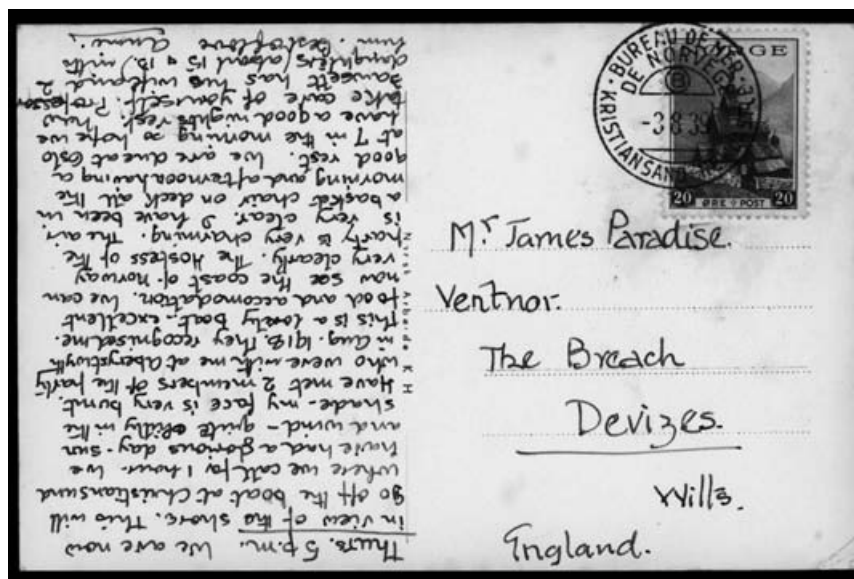 Thurs. 5 p.m. We are now
in view of the shore. This will
go off the boat at Christiansund
where we call for 1 hour. We
have had a glorious day - sun
and wind - quite chilly in the
shade - my face is very burnt.
Have met 2 members of the party
who were with me at Aberystwyth
in Aug. 1918. They recognised me.
This is a lovely boat - excellent
food and accomodation. We can
now see the coast of Norway
very clearly. The Hostess of the
party is very charming. The air
is very clear. I have been in
a basket chair on deck all the
morning and afternoon having a
good rest. We are due at Oslo
at 7 in the morning so hope we
have a good nights rest. Now
take care of yourself. Professor
has his wife and 2
daughters (about 15 & 13) with
him. Best of love
Norsk Arbeide K H
BUREAU DE MER
DE NORVEGE
B
-3 8 39
KRISTIANSAND
RGE
20 ØRE POST 20
Mr James Paradise.
Ventnor.
The Breach
Devizes.
Wilts.
England.